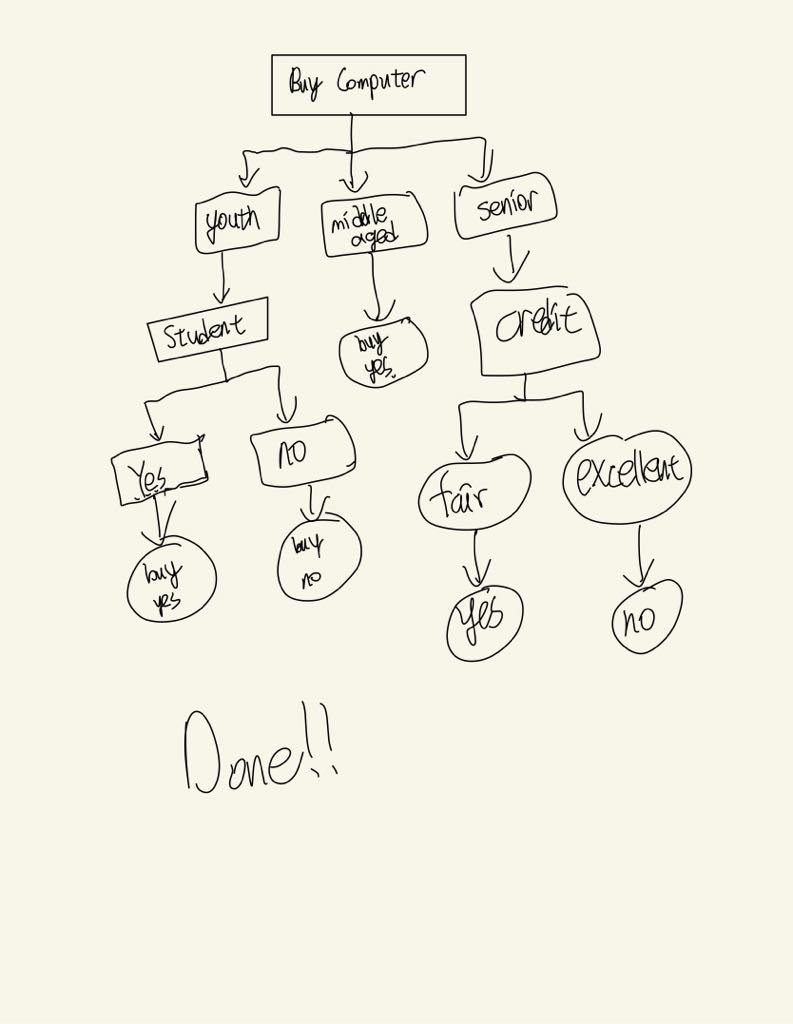 Buy Computer
youth
middle
aged
senior
Student
buy
yes.
credit
Yes
no
fair
excellent
buy
yes
buy
no
yes
no
Done!!